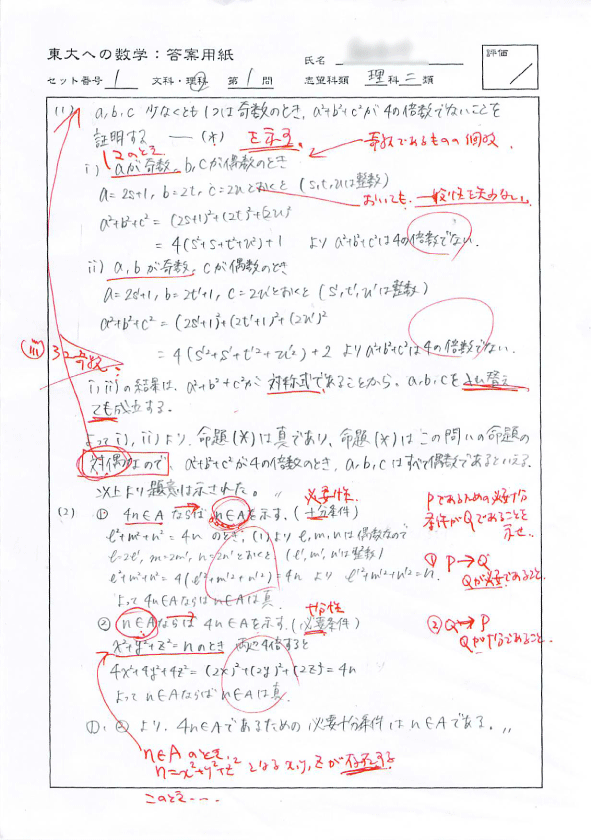 東大への数学：答案用紙
氏名
評価
セット番号 1 文科・理科 第 1 問 志望科類 理科二類
(1) a,b,c 少なくとも1つは奇数のとき、a²+b²+c²が4の倍数でないことを
証明する ―(*) を示す。 奇数であるものの個数、
1つのとき
i) aが奇数、b,cが偶数のとき
a=2s+1, b=2t, c=2uとおくと (s,t,uは整数) おいても、一般性を失わない。
a²+b²+c² = (2s+1)²+(2t)²+(2u)²
= 4(s²+s+t²+u²)+1 より a²+b²+c²は4の倍数でない。
ii) a,bが奇数、cが偶数のとき
a=2s'+1, b=2t'+1, c=2u'とおくと (s',t',u'は整数)
a²+b²+c² = (2s'+1)²+(2t'+1)²+(2u')²
= 4(s'²+s'+t'²+t'+u'²)+2 より a²+b²+c²は4の倍数でない。
(iii) 3つとも奇数
i),ii)の結果は、a²+b²+c²が対称式であることから、a,b,cを入れ替え
ても成立する。
よって i), ii)より、命題(*)は真であり、命題(*)はこの問いの命題の
対偶なので、a²+b²+c²が4の倍数のとき、a,b,cはすべて偶数であるといえる。
以上より題意は示された。〃
必要性
(2) ① 4n∈A ならば n∈Aを示す。(十分条件)
Pであるための必要十分
条件がQであることを
示せ。
l²+m²+n²=4n のとき、(1)より l,m,nは偶数なので
l=2l', m=2m', n=2n'とおくと (l',m',n'は整数)
① P→Q
Qが必要であること。
l²+m²+n²=4(l'²+m'²+n'²)=4n より l'²+m'²+n'²=n.
よって 4n∈Aならばn∈Aは真。
十分性
② n∈Aならば 4n∈Aを示す。(必要条件)
② Q→P
Qが十分であること。
x²+y²+z²=nのとき 両辺4倍すると
4x²+4y²+4z²=(2x)²+(2y)²+(2z)²=4n
よって n∈Aならばn∈Aは真.
①,②より、4n∈Aであるための必要十分条件はn∈Aである。〃
n∈Aのとき、
n=x²+y²+z²となるx,y,zが存在する
このとき…